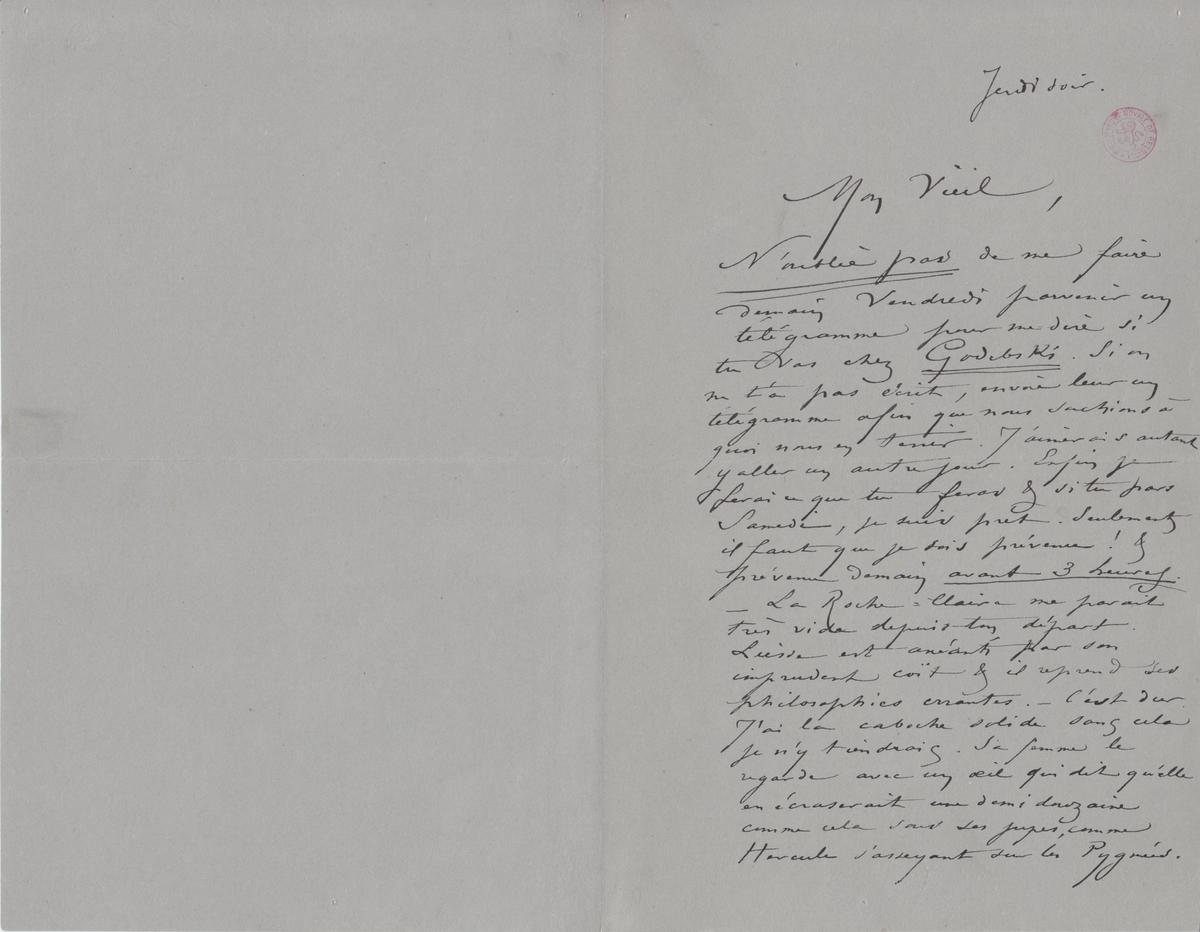 Jeudi soir.
Mon Vieil,
N'oublie pas de me faire
demain Vendredi parvenir un
télégramme pour me dire si
tu vas chez Godebski. Si on
ne t'a pas écrit, envoie leur un
télégramme afin que nous sachions à
quoi nous en tenir. J'aimerais autant
y aller un autre jour. Enfin je
ferai ce que tu feras & si tu pars
Samedi, je suis prêt. Seulement
il faut que je sois prévenu! &
prévenu demain avant 3 heures.
– La Roche=Claire me parait
très vide depuis ton départ.
est anéanti par son
imprudent coït & il reprend ses
philosophies errantes. – C'est dur.
J'ai la caboche solide sans cela
je n'y tiendrais. Sa femme le
regarde avec un œil qui dit qu'elle
en écraserait une demi douzaine
comme cela sous ses jupes, comme
Hercule s'asseyant sur les Pygmées.